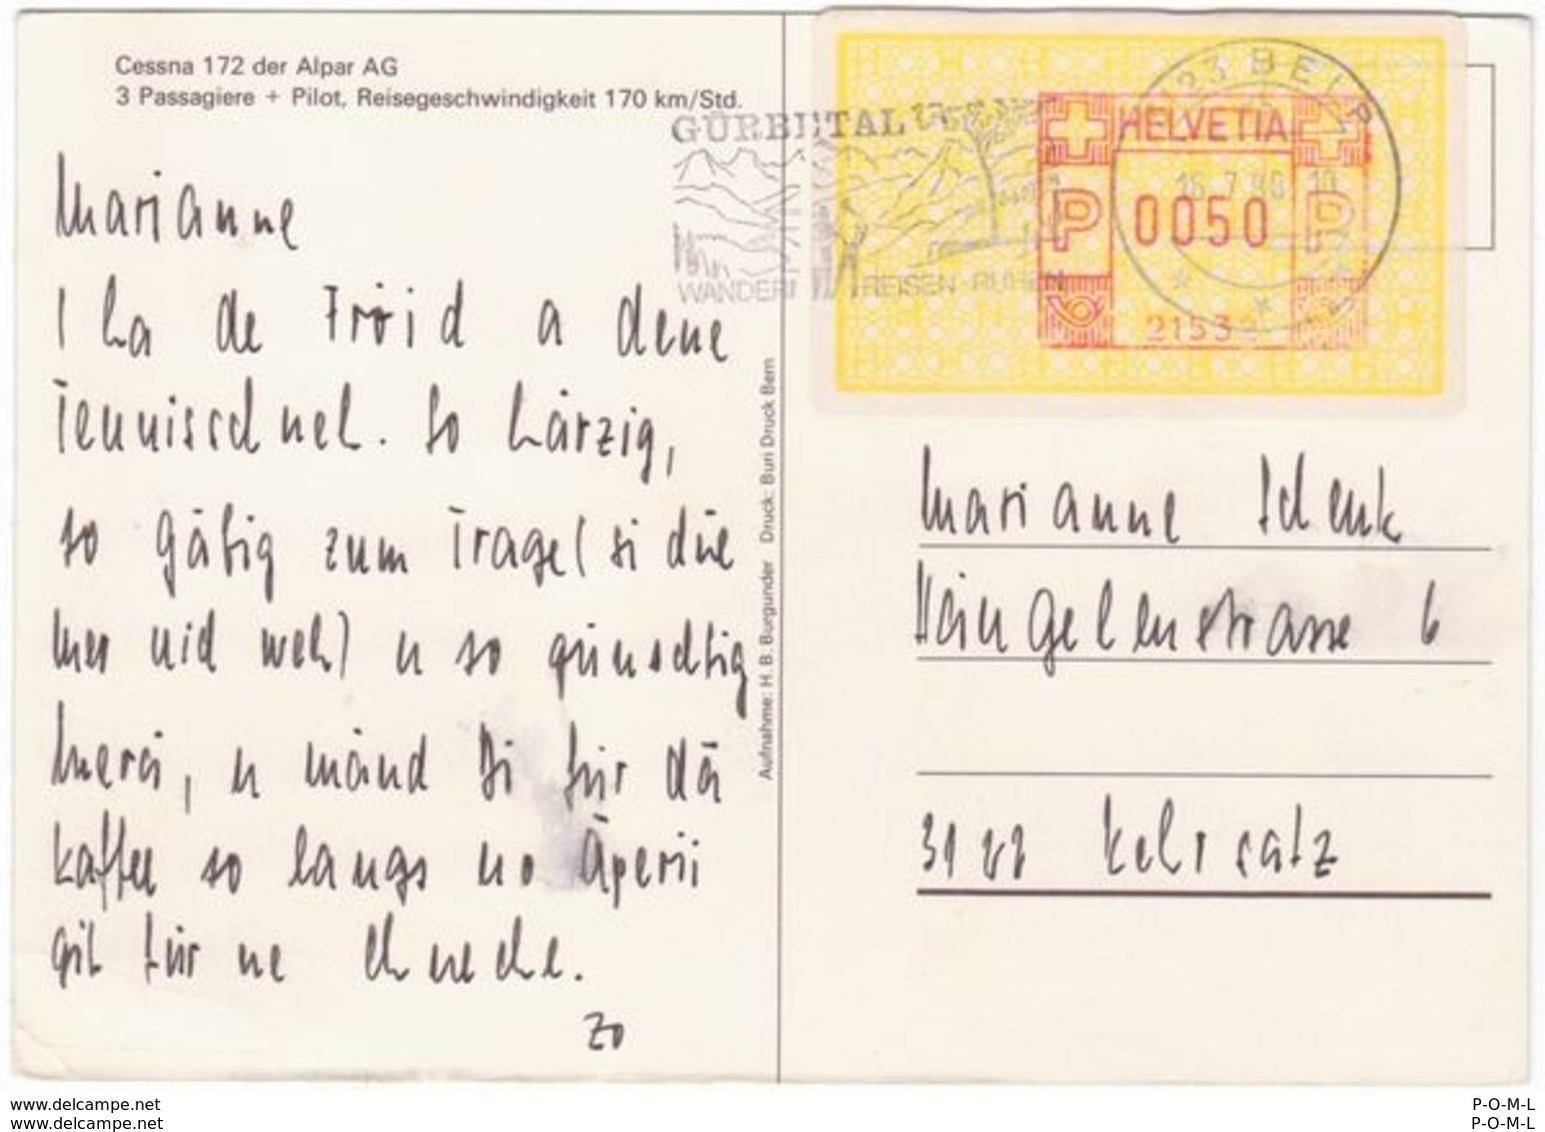 Cessna 172 der Alpar AG
3 Passagiere + Pilot, Reisegeschwindigkeit 170 km/Std.
Marianne
I ha de Fröid a dene
Tennisschueh. So härzig,
so gäbig zum Trage (si düe
mer nid weh) u so günschtig
Merci, u mänd Si für dä
Kaffee so längs no Äperii
git für ne Chueche.
Zo
Aufnahme: H. B. Burgunder Druck: Buri Druck Bern
GÜRBETAL
WANDERN REISEN RUHEN
23 BELP
HELVETIA
P 0050 P
2153
Marianne Schenk
strasse 6
3122 Kehrsatz
www.delcampe.net
www.delcampe.net
P-O-M-L
P-O-M-L